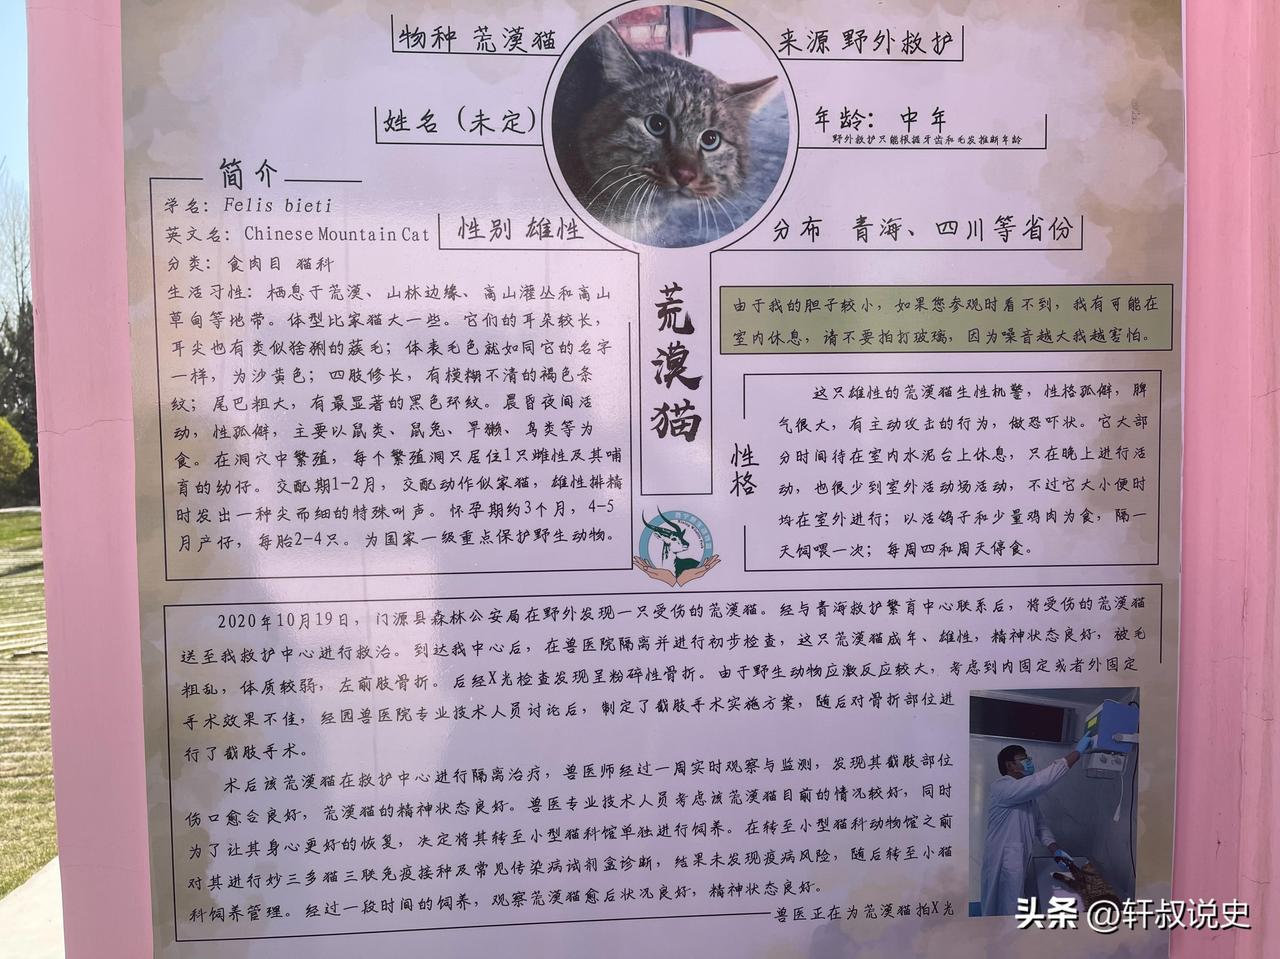 物种 荒漠猫
来源 野外救护
姓名（未定）
年龄：中年
野外救护只能根据牙齿和毛发推断年龄
简介
学名：Felis bieti
英文名：Chinese Mountain Cat
性别 雄性
分布 青海、四川等省份
分类：食肉目 猫科
生活习性：栖息于荒漠、山林边缘、高山灌丛和高山
草甸等地带。体型比家猫大一些。它们的耳朵较长，
耳尖也有类似猞猁的蔟毛；体表毛色就如同它的名字
一样，为沙黄色；四肢修长，有模糊不清的褐色条
纹；尾巴粗大，有最显著的黑色环纹。晨昏夜间活
动，性孤僻，主要以鼠类、鼠兔、旱獭、鸟类等为
食。在洞穴中繁殖，每个繁殖洞只居住1只雌性及其哺
育的幼仔。交配期1-2月，交配动作似家猫，雄性排精
时发出一种尖而细的特殊叫声。怀孕期约3个月，4-5
月产仔，每胎2-4只。为国家一级重点保护野生动物。
荒漠猫
由于我的胆子较小，如果您参观时看不到，我有可能在
室内休息，请不要拍打玻璃，因为噪音越大我越害怕。
性格
这只雄性的荒漠猫生性机警，性格孤僻，脾
气很大，有主动攻击的行为，做恐吓状。它大部
分时间待在室内水泥台上休息，只在晚上进行活
动，也很少到室外活动场活动，不过它大小便时
均在室外进行；以活鸽子和少量鸡肉为食，隔一
天饲喂一次；每周四和周天停食。
2020年10月19日，门源县森林公安局在野外发现一只受伤的荒漠猫。经与青海救护繁育中心联系后，将受伤的荒漠猫
送至我救护中心进行救治。到达我中心后，在兽医院隔离并进行初步检查，这只荒漠猫成年、雄性，精神状态良好，被毛
粗乱，体质较弱，左前肢骨折。后经X光检查发现呈粉碎性骨折。由于野生动物应激反应较大，考虑到内固定或者外固定
手术效果不佳，经园兽医院专业技术人员讨论后，制定了截肢手术实施方案，随后对骨折部位进
行了截肢手术。
术后该荒漠猫在救护中心进行隔离治疗，兽医师经过一周实时观察与监测，发现其截肢部位
伤口愈合良好，荒漠猫的精神状态良好。兽医专业技术人员考虑该荒漠猫目前的情况较好，同时
为了让其身心更好的恢复，决定将其转至小型猫科馆单独进行饲养。在转至小型猫科动物馆之前
对其进行妙三多猫三联免疫接种及常见传染病试剂盒诊断，结果未发现疫病风险，随后转至小猫
科饲养管理。经过一段时间的饲养，观察荒漠猫愈后状况良好，精神状态良好。
兽医正在为荒漠猫拍X光
头条 @轩叔说史